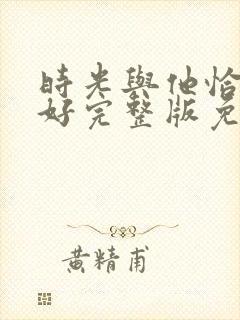 時光與他恰
好完整版免
黄精甫